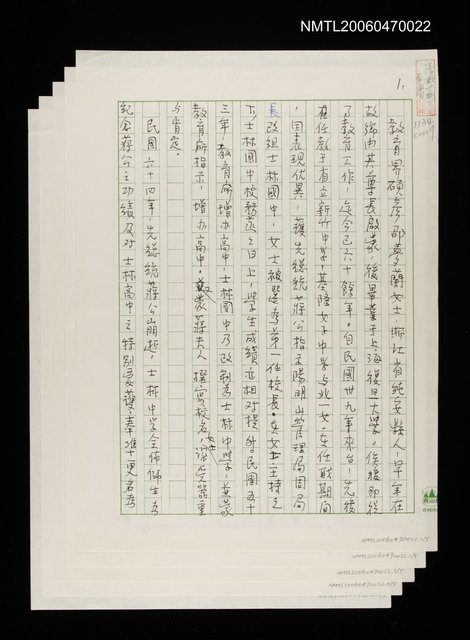 NMTL20060470022
1.
教育界碩彥邵夢蘭女士，浙江省純安縣人，早年在
故鄉由其尊長啟蒙，後畢業于上海復旦大學，俟後即從
了教育工作，迄今已六十餘年。自民國卅九年來台，先後
在任教于省立新竹中學、基隆女子中學与北一女。在任職期間
，因表現优異，獲先總統蔣公指示陽明山管理局因局
長改組士林國中，女士被選為第一任校長。在女士主持之
下，士林國中校務蒸蒸日上，學生成績亦相對提升。民國五十
三年，教育廳增办高中，士林國中乃改制為士林中學，並蒙
教育廳指示，增办高中。並蒙蔣夫人撰寫校名，深受器重
与肯定。
民國六十四年，先總統蔣公崩逝，士林中学全体師生為
紀念蔣公之功績及对士林高中之特别愛護，奉准更名為
NMTL20060470022,1/5
NMTL20060470022,2/5
NMTL20060470022,3/5
NMTL20060470022,4/5
NMTL20060470022,5/5